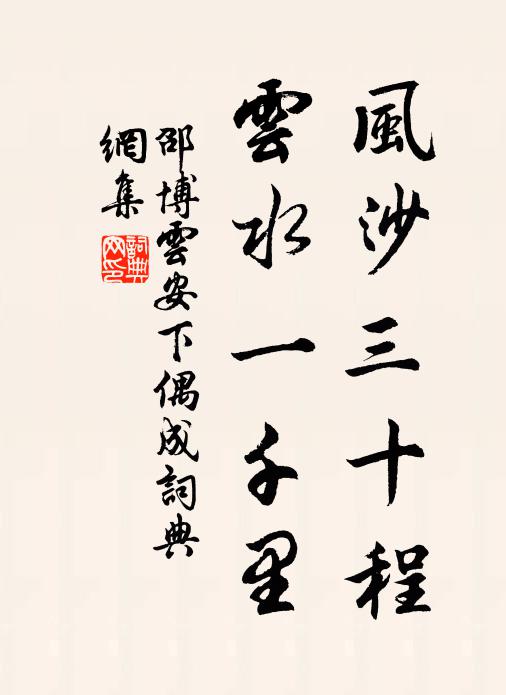 風沙三十程
雲水一千里
邵博雲安下偶成詞典
網集
詞典
网印